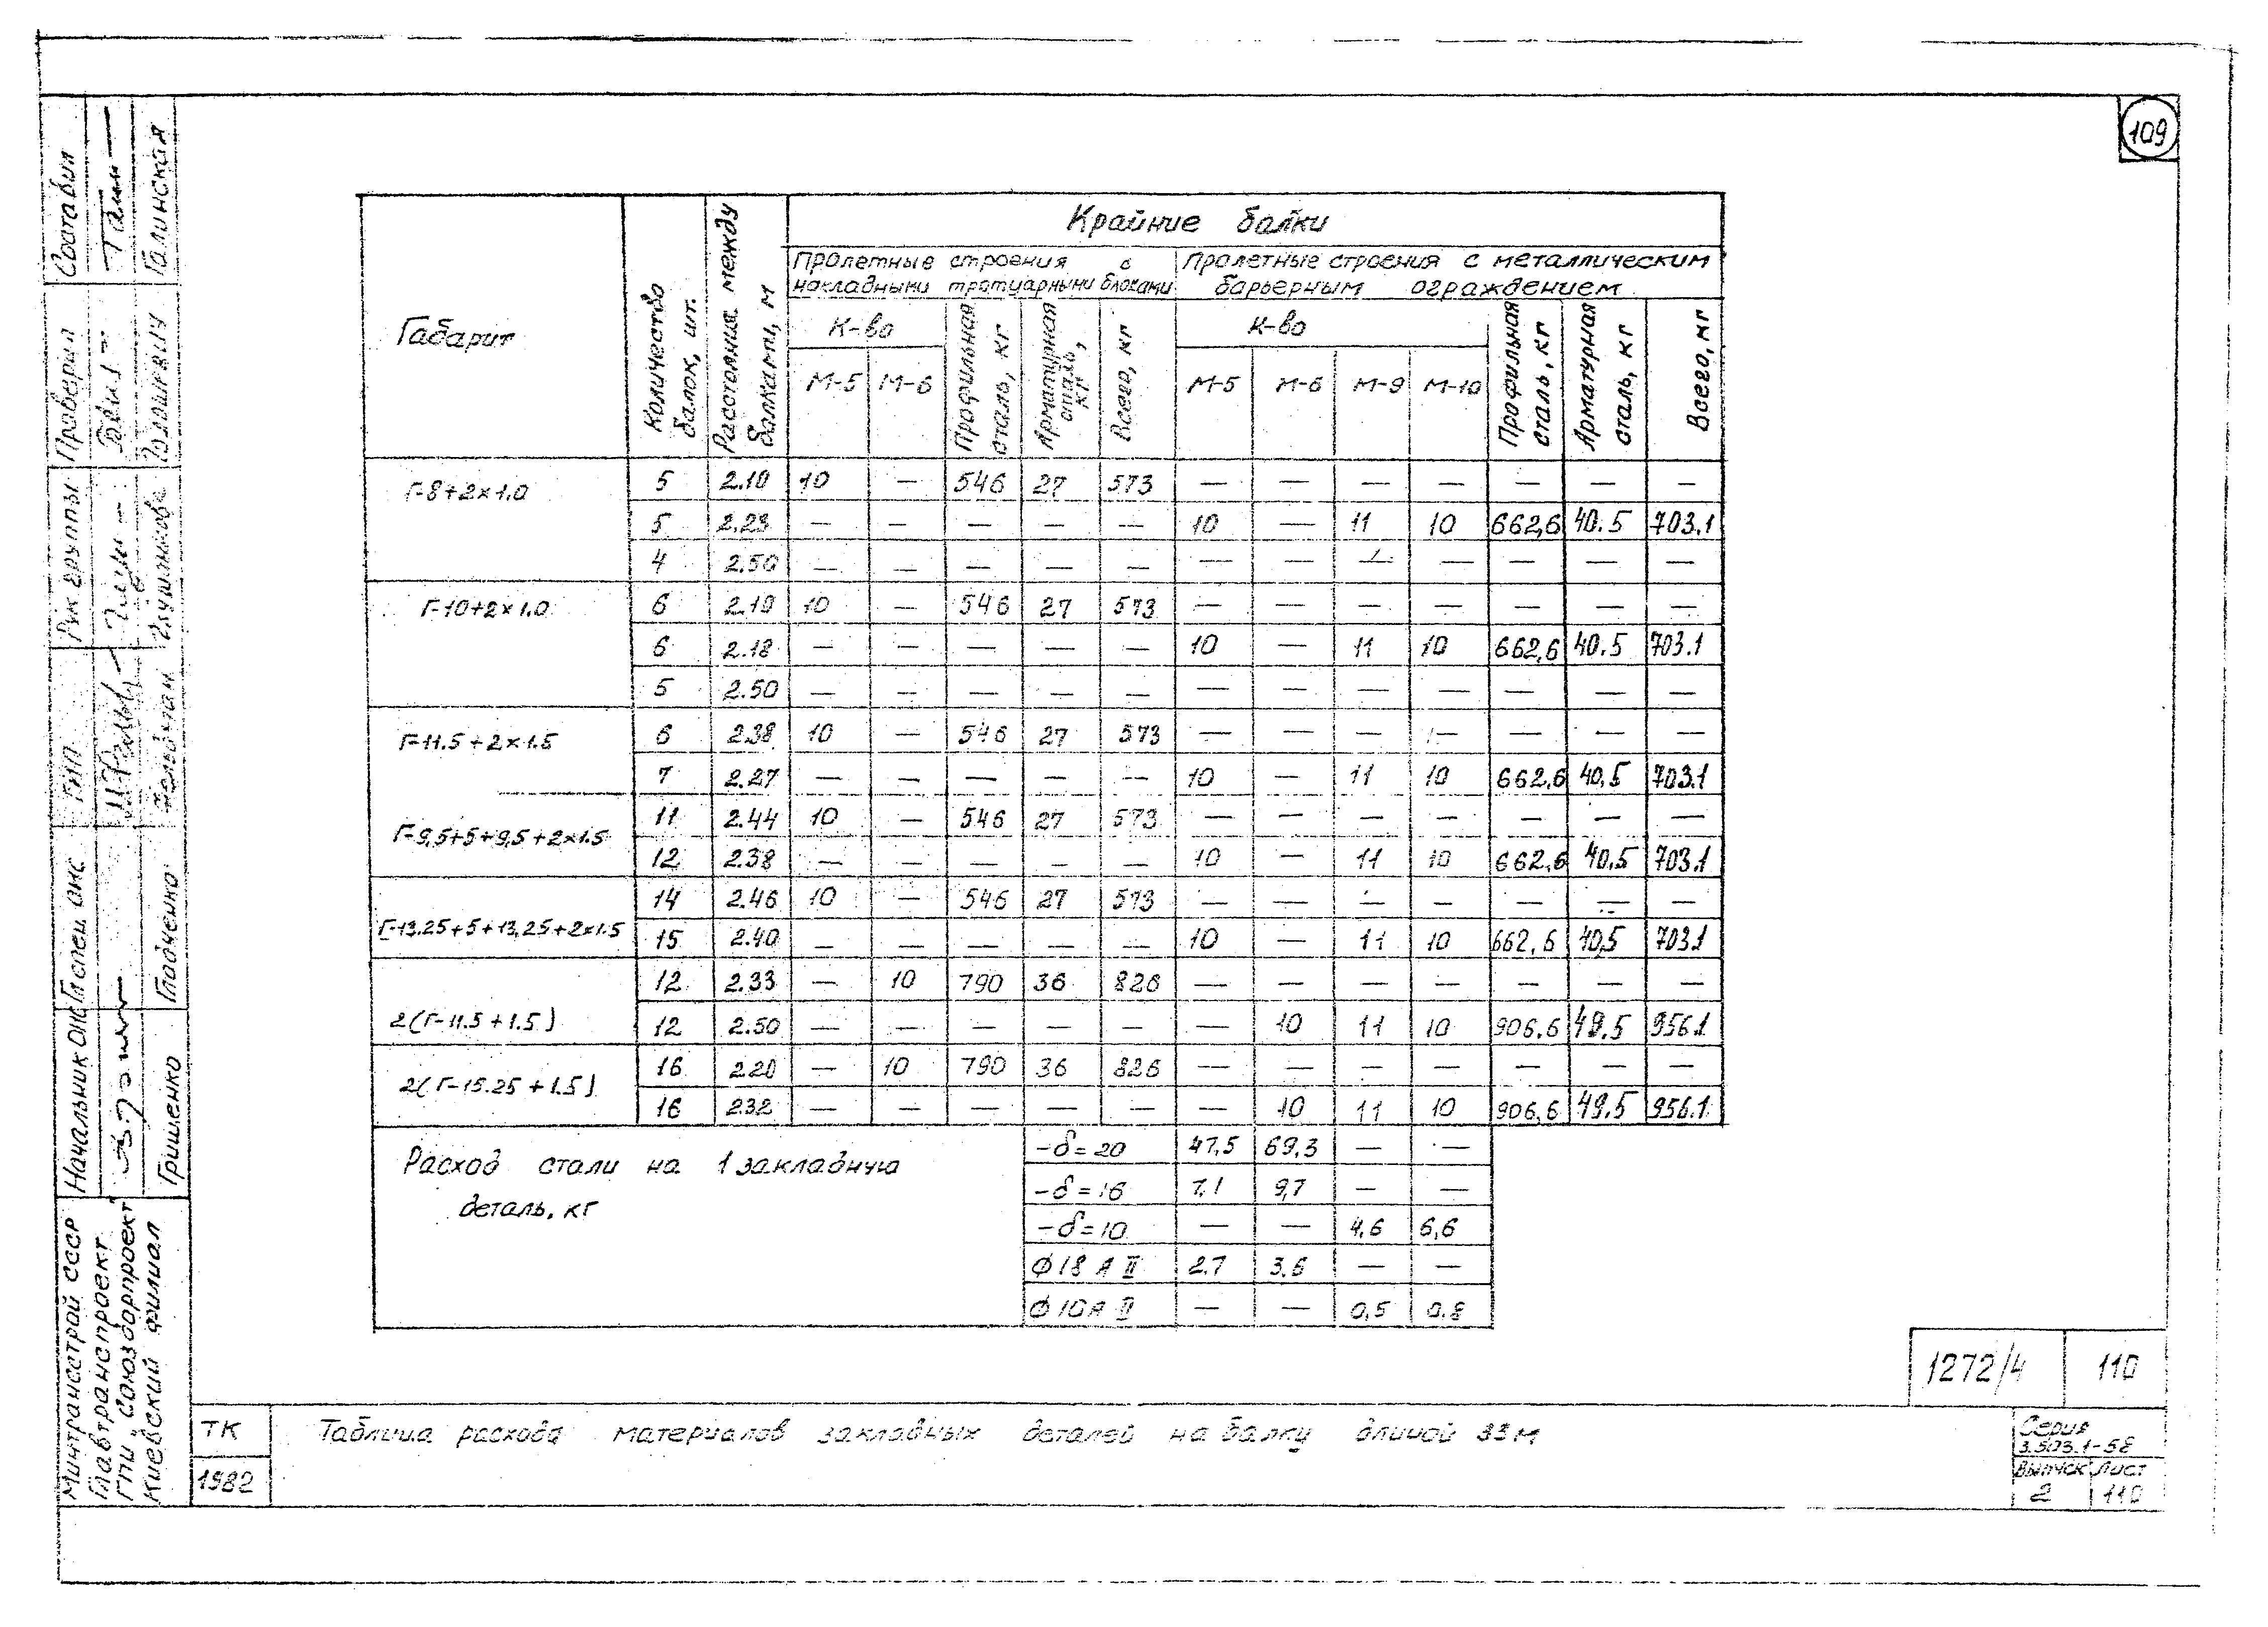 109
Крайние балки
Габарит
Количество балок, шт.
Расстояния между балками, м
Пролетные строения с накладными тротуарными блоками
Пролетные строения с металлическим барьерным ограждением
К-во
Профильная сталь, кг
Арматурная сталь, кг
Всего, кг
К-во
Профильная сталь, кг
Арматурная сталь, кг
Всего, кг
М-5 М-6 М-5 М-6 М-9 М-10
Г-8+2×1.0 5 2.10 10 — 546 27 573 — — — — — — —
5 2.23 — — — — — 10 — 11 10 662,6 40.5 703.1
4 2.50 — — — — — — — — — — — —
Г-10+2×1.0 6 2.10 10 — 546 27 573 — — — — — — —
6 2.18 — — — — — 10 — 11 10 662,6 40.5 703.1
5 2.50 — — — — — — — — — — — —
Г-11.5+2×1.5 6 2.38 10 — 546 27 573 — — — — — — —
7 2.27 — — — — — 10 — 11 10 662.6 40,5 703.1
Г-9,5+5+9,5+2×1.5 11 2.44 10 — 546 27 573 — — — — — — —
12 2.38 — — — — — 10 — 11 10 662,6 40,5 703.1
Г-13.25+5+13,25+2×1.5 14 2.46 10 — 546 27 573 — — — — — — —
15 2.40 — — — — — 10 — 11 10 662,6 40,5 703.1
2(Г-11.5+1.5) 12 2.33 — 10 790 36 826 — — — — — — —
12 2.50 — — — — — — 10 11 10 906,6 49.5 956.1
2(Г-15.25+1.5) 16 2.20 — 10 790 36 826 — — — — — — —
16 2.32 — — — — — — 10 11 10 906,6 49.5 956.1
Расход стали на 1 закладную деталь, кг
-δ=20 47,5 69,3 — —
-δ=16 7,1 9,7 — —
-δ=10 — — 4,6 6,6
Ф18 А II 2.7 3.6 — —
Ф10А II — — 0,5 0.8
1272/4 110
ТК
1982
Таблица расхода материалов закладных деталей на балку длиной 33м
Серия
3.503.1-58
Выпуск Лист
2 110
Составил Галинская
Проверил
Рук группы Глушкова
ГИП Фельдман
Гл спец. ОИС Гладченко
Начальник ОИС Гришенко
Минтрансстрой СССР
Главтранспроект
ГПИ „Союздорпроект"
Киевский филиал